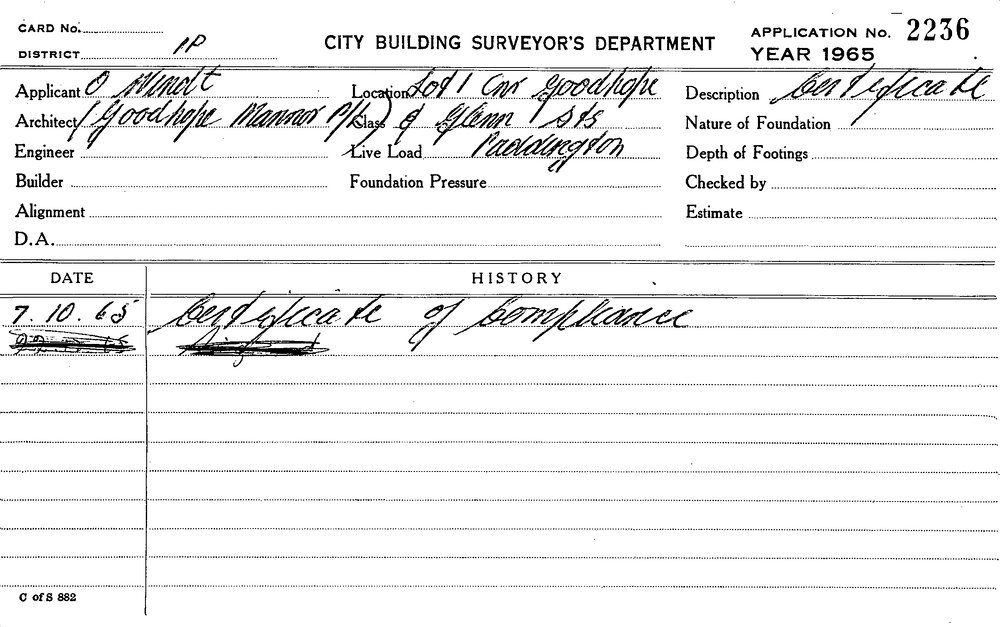 CARD No.
DISTRICT 1P
CITY BUILDING SURVEYOR'S DEPARTMENT
APPLICATION No. 2236
YEAR 1965
Applicant O Windt
Location Lot 1 Cnr Goodhope
Description Certificate
Architect (Goodhope Mannor P/L)
Class & Glenn Sts
Nature of Foundation
Engineer
Live Load Paddington
Depth of Footings
Builder
Foundation Pressure
Checked by
Alignment
Estimate
D.A.
DATE HISTORY
7.10.65 Certificate of Compliance
C of S 882